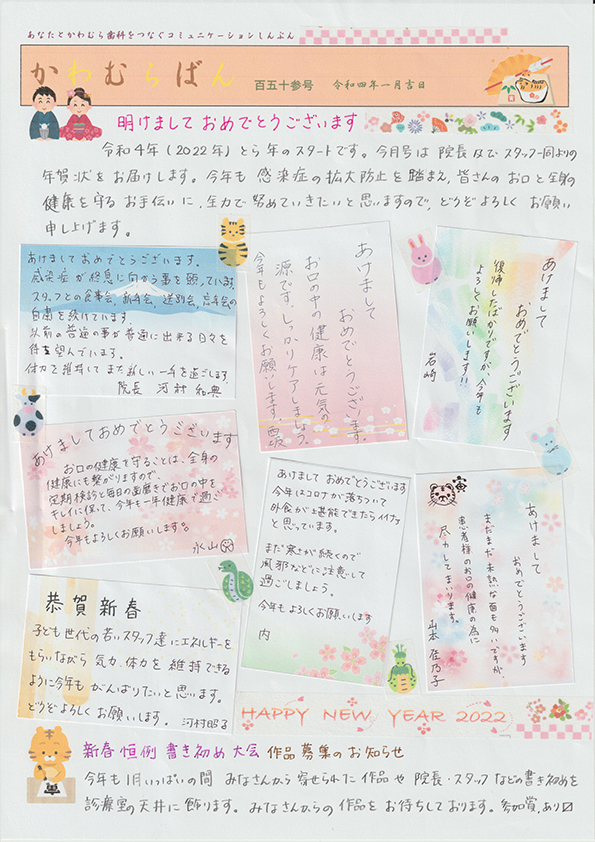 あなたとかわむら歯科をつなぐコミュニケーションしんぶん
かわむらばん
百五十参号 令和四年一月吉日
明けまして おめでとうございます
令和4年(2022年)とら年のスタートです。今月号は 院長及びスタッフ一同よりの
年賀状を お届けします。今年も 感染症の拡大防止を 踏まえ、皆さんの お口と全身の
健康を守る お手伝いに、全力で 努めていきたいと思いますので、どうぞよろしく お願い
申し上げます。
あけまして おめでとうございます。
感染症が 終息に向かう事を 願っています。
スタッフとの食事会、新年会、送別会、忘年会の
自粛を続けています。
以前の普通の事が普通に出来る日々を
待ち望んでいます。
体力を維持して また 新しい一年を過ごします。
院長 河村 和典
あけまして
おめでとうございます。
お口の中の健康は元気の
源です。しっかりケアしましょう。
今年もよろしくお願いします。西坂
あけまして
おめでとうございます
復帰したばかりですが、今年も
よろしくお願いします!!
岩崎
あけましておめでとうございます
お口の健康を守ることは、全身の
健康にも繋がりますので、
定期検診と毎日の歯磨きでお口の中を
キレイに保って、今年も一年健康で過ごし
ましょう。
今年もよろしくお願いします。
永山
あけまして おめでとうございます
今年はコロナが落ちついて
外食が堪能できたらイイナァ
と思っています。
まだ寒さが続くので
風邪などに注意して
過ごしましょう。
今年も よろしくお願いします
内
寅
あけまして
おめでとうございます
まだまだ未熟な面も多いですが
患者様のお口の健康の為に
尽力してまいります。
山本 佳乃子
恭賀新春
子ども世代の若いスタッフ達にエネルギーを
もらいながら 気力、体力を 維持できる
ように今年も がんばりたいと思います。
どうぞよろしく お願いします。 河村昭子
HAPPY NEW YEAR 2022
新春恒例 書き初め大会 作品募集のお知らせ
今年も1月いっぱいの間 みなさんから 寄せられた 作品や 院長・スタッフなどの書き初めを
診療室の天井に 飾ります。みなさんからの作品を お待ちしております。参加賞、あり〼